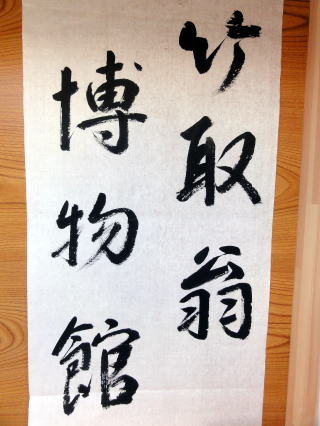 竹取翁
博物館